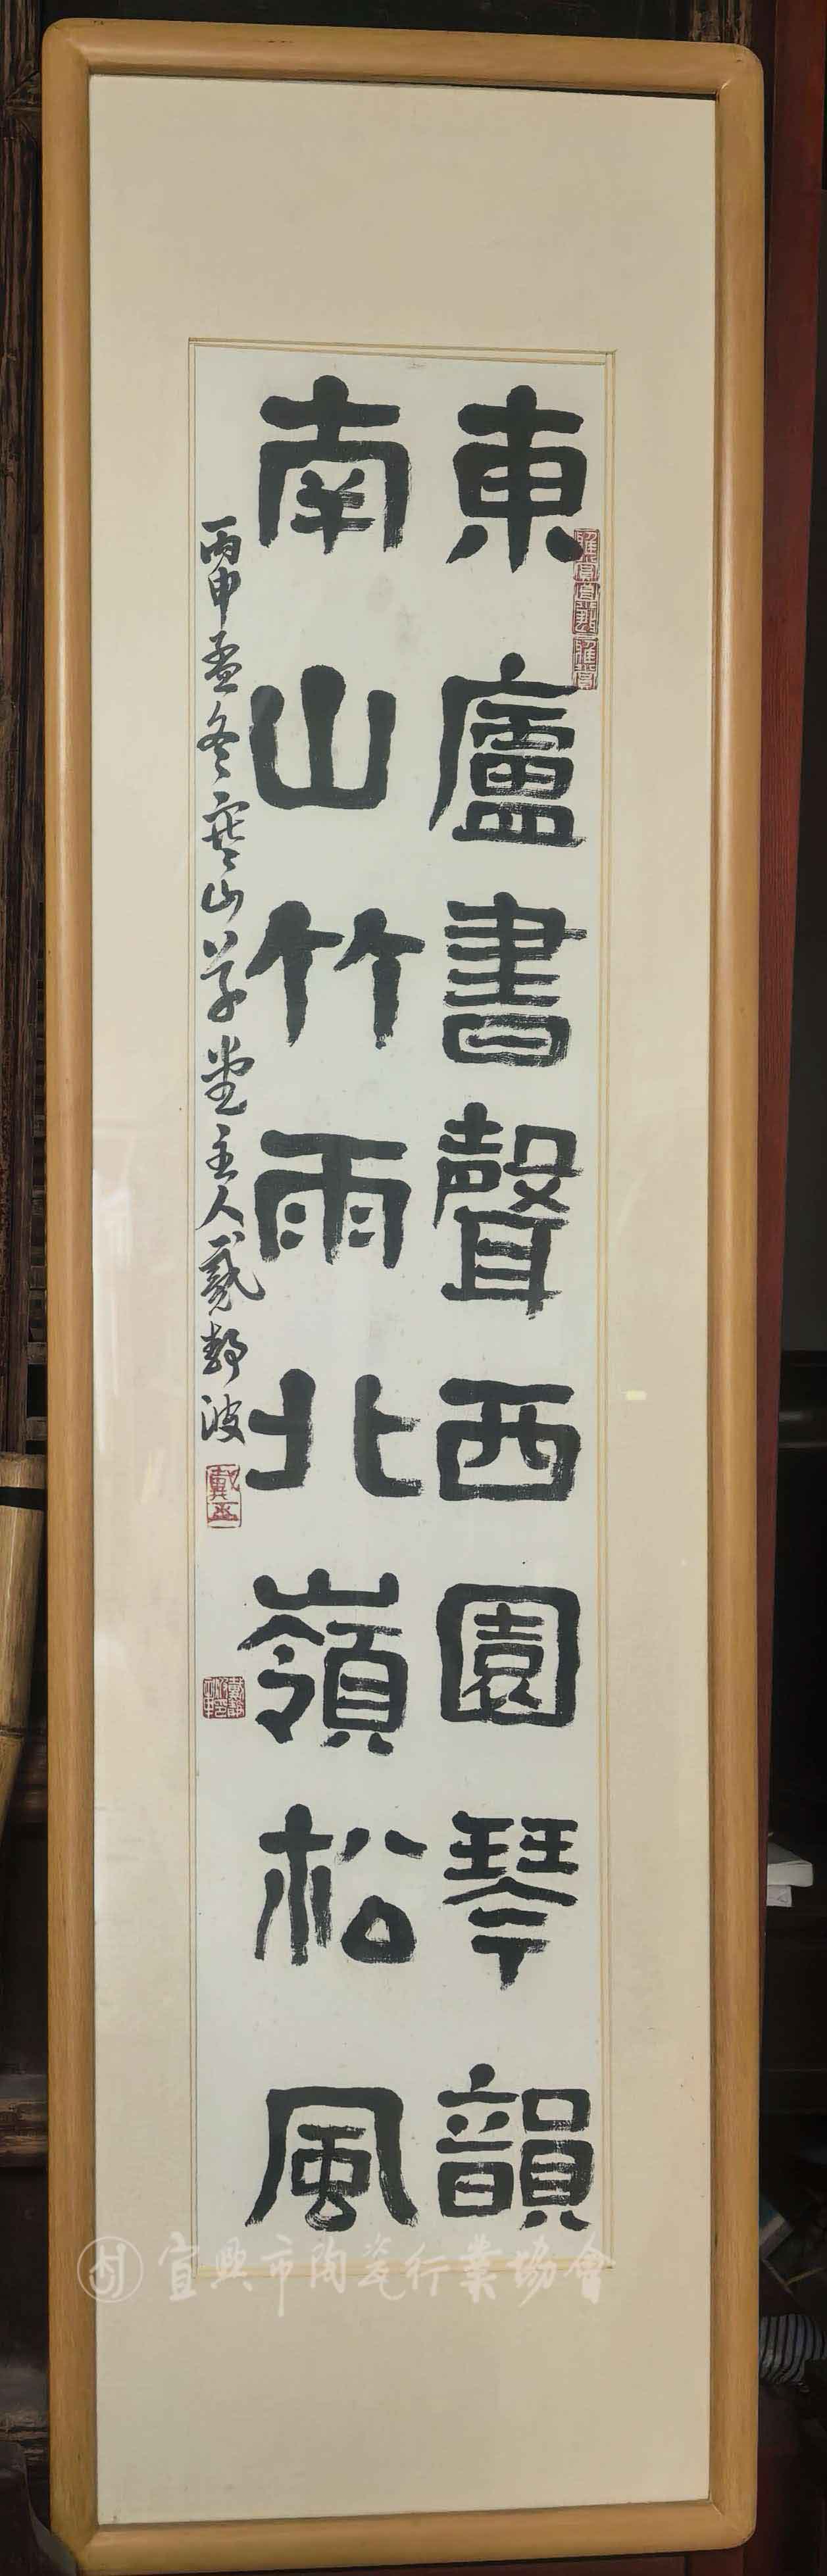 東廬書聲西園琴韻
南山竹雨北嶺松風
丙申孟冬寒山草堂主人戴靜波
宜興市陶瓷行業協會